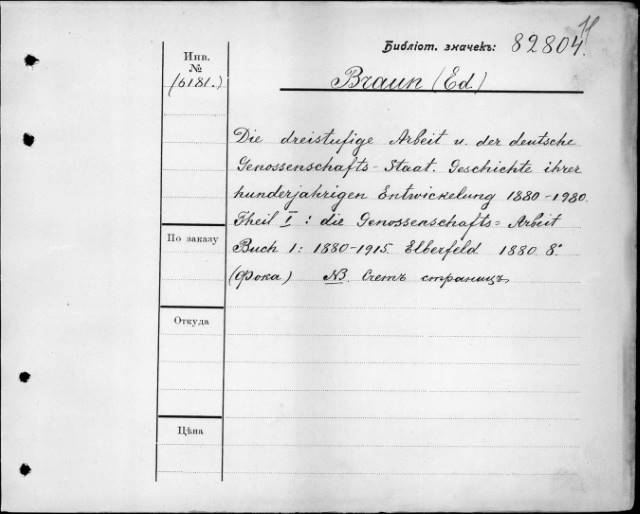 Библіот. значекъ: 82804
Инв.
№
(6181.)
Braun (Ed.)
Die dreistufige Arbeit u. der deutsche
Genossenschafts-Staat. Geschichte ihrer
hunderjahrigen Entwickelung 1880-1980.
Theil I: die Genossenschafts= Arbeit
Buch 1: 1880-1915. Elberfeld. 1880. 8°.
(Фока) NB. Счетъ страницъ
По заказу
Откуда
Цѣна